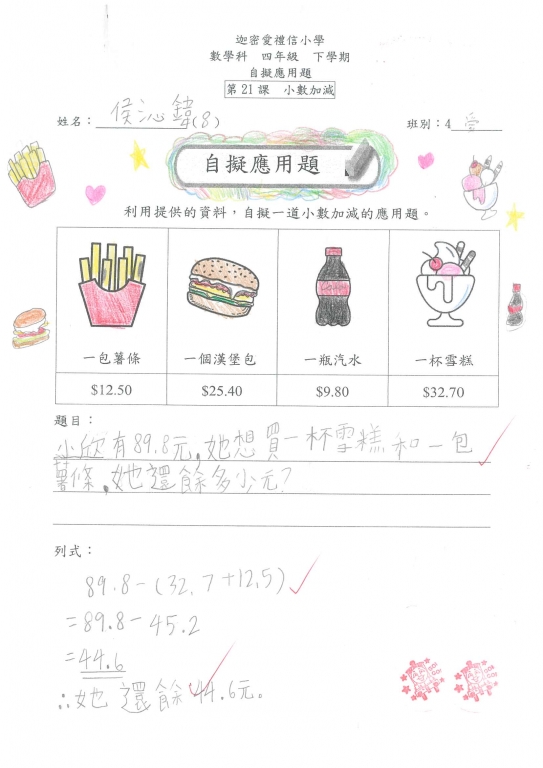 迦密愛禮信小學
數學科 四年級 下學期
自擬應用題
第 21 課 小數加減
姓名： 侯沁鍏(8) 班別：4 愛
自擬應用題
利用提供的資料，自擬一道小數加減的應用題。
一包薯條 一個漢堡包 一瓶汽水 一杯雪糕
$12.50 $25.40 $9.80 $32.70
題目：
小欣有89.8元，她想買一杯雪糕和一包
薯條，她還餘多少元？
列式：
89.8-(32.7+12.5)
=89.8-45.2
=44.6
∴她還餘44.6元。